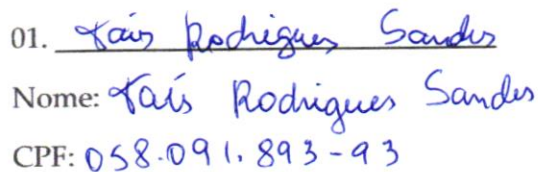 01. Taís Rodrigues Sandes
Nome: Taís Rodrigues Sandes
CPF: 058.091.893-93